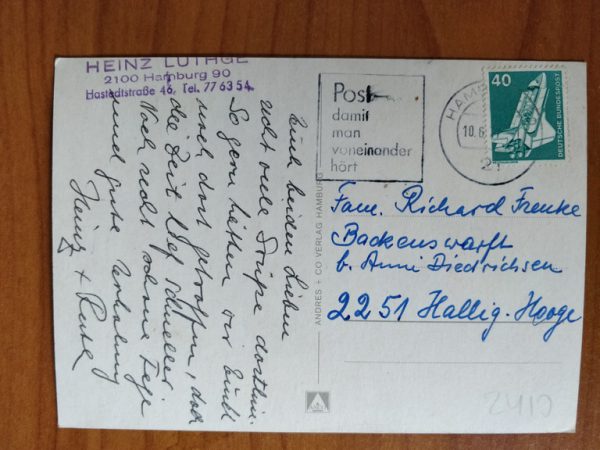 HEINZ LÜTHGE
2100 Hamburg 90
Hastedtstraße 46, Tel. 77 63 54
Euch beiden Lieben
recht viele Grüße dorthin.
So gern hätten wir Euch
noch dort getroffen, doch
die Zeit lief schneller.
Noch recht schöne Tage
und gute Erholung
Heinz +
Post
damit
man
voneinander
hört
HAMB
10.6
21
40
DEUTSCHE BUNDESPOST
ANDRES + CO VERLAG HAMBURG
Fam. Richard Frenke
Backenswarft
b. Anni Diedrichsen
2251 Hallig-Hooge
2410